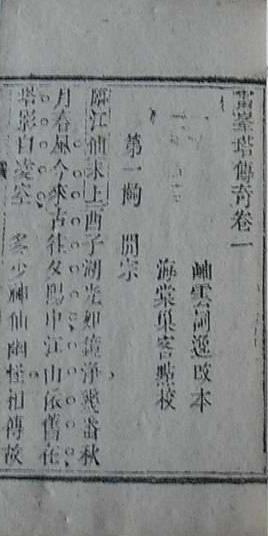 雷峯塔傳奇卷一
岫雲詞逸改本
海棠巢客點校
第一齣　開宗
臨江仙末上西子湖光如鏡淨幾番秋
月春風今來古往夕陽中江山依舊在
塔影自凌空　多少神仙幽怪相傳故